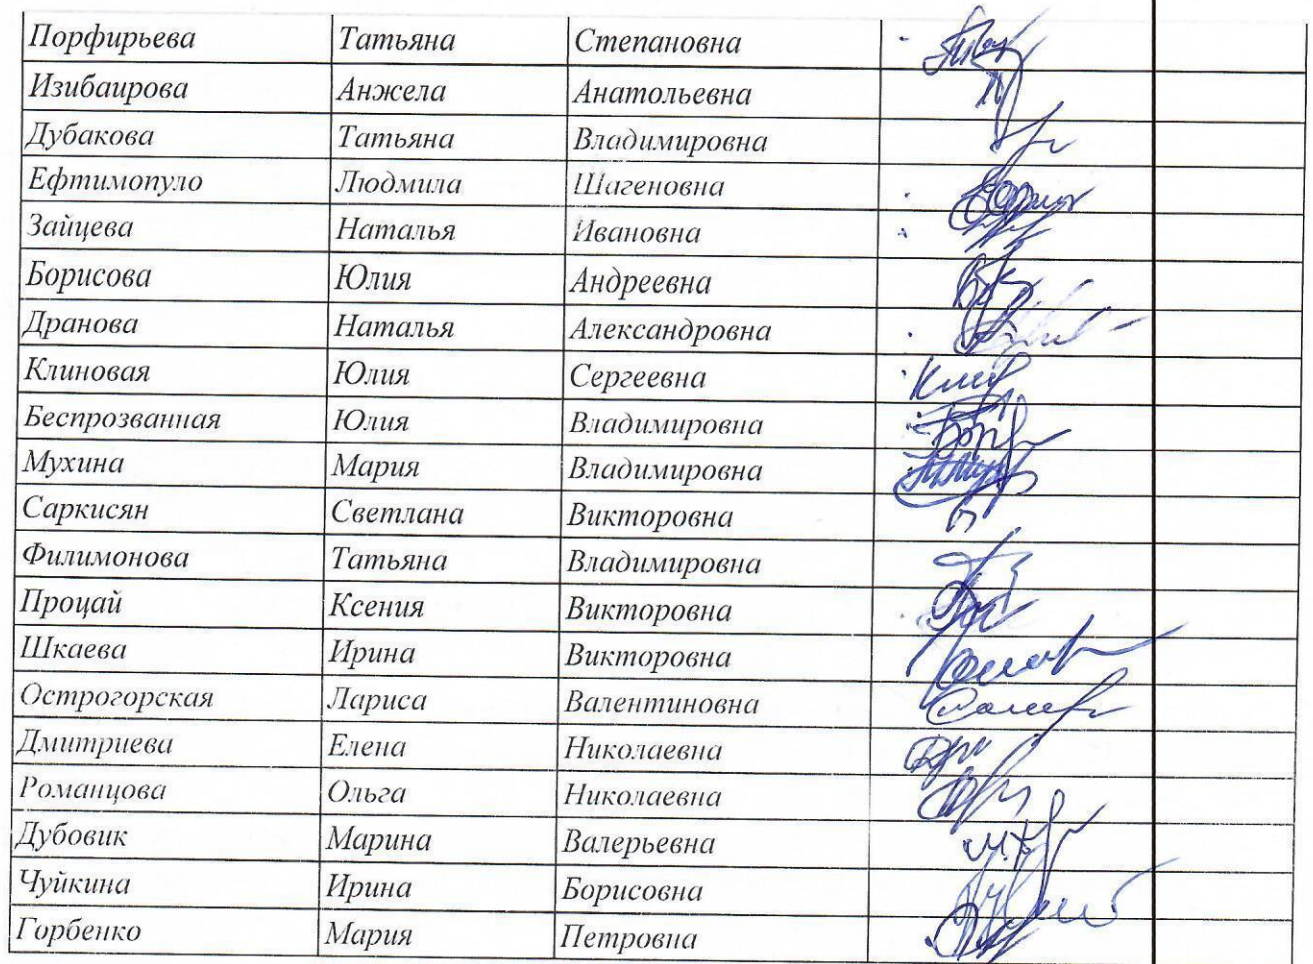 Порфирьева Татьяна Степановна
Изибаирова Анжела Анатольевна
Дубакова Татьяна Владимировна
Ефтимопуло Людмила Шагеновна
Зайцева Наталья Ивановна
Борисова Юлия Андреевна
Дранова Наталья Александровна
Клиновая Юлия Сергеевна
Беспрозванная Юлия Владимировна
Мухина Мария Владимировна
Саркисян Светлана Викторовна
Филимонова Татьяна Владимировна
Процай Ксения Викторовна
Шкаева Ирина Викторовна
Острогорская Лариса Валентиновна
Дмитриева Елена Николаевна
Романцова Ольга Николаевна
Дубовик Марина Валерьевна
Чуйкина Ирина Борисовна
Горбенко Мария Петровна